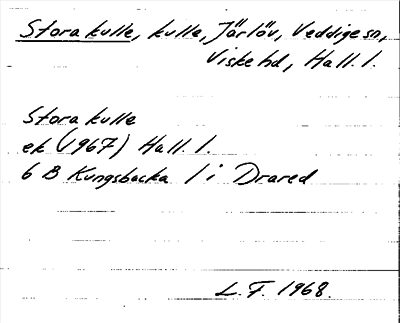 Stora kulle, kulle, Järlöv, Veddige sn,
Viske hd, Hall. l.
Stora kulle
ek (1967) Hall. l.
6 B Kungsbacka / i Drared
L.F. 1968.